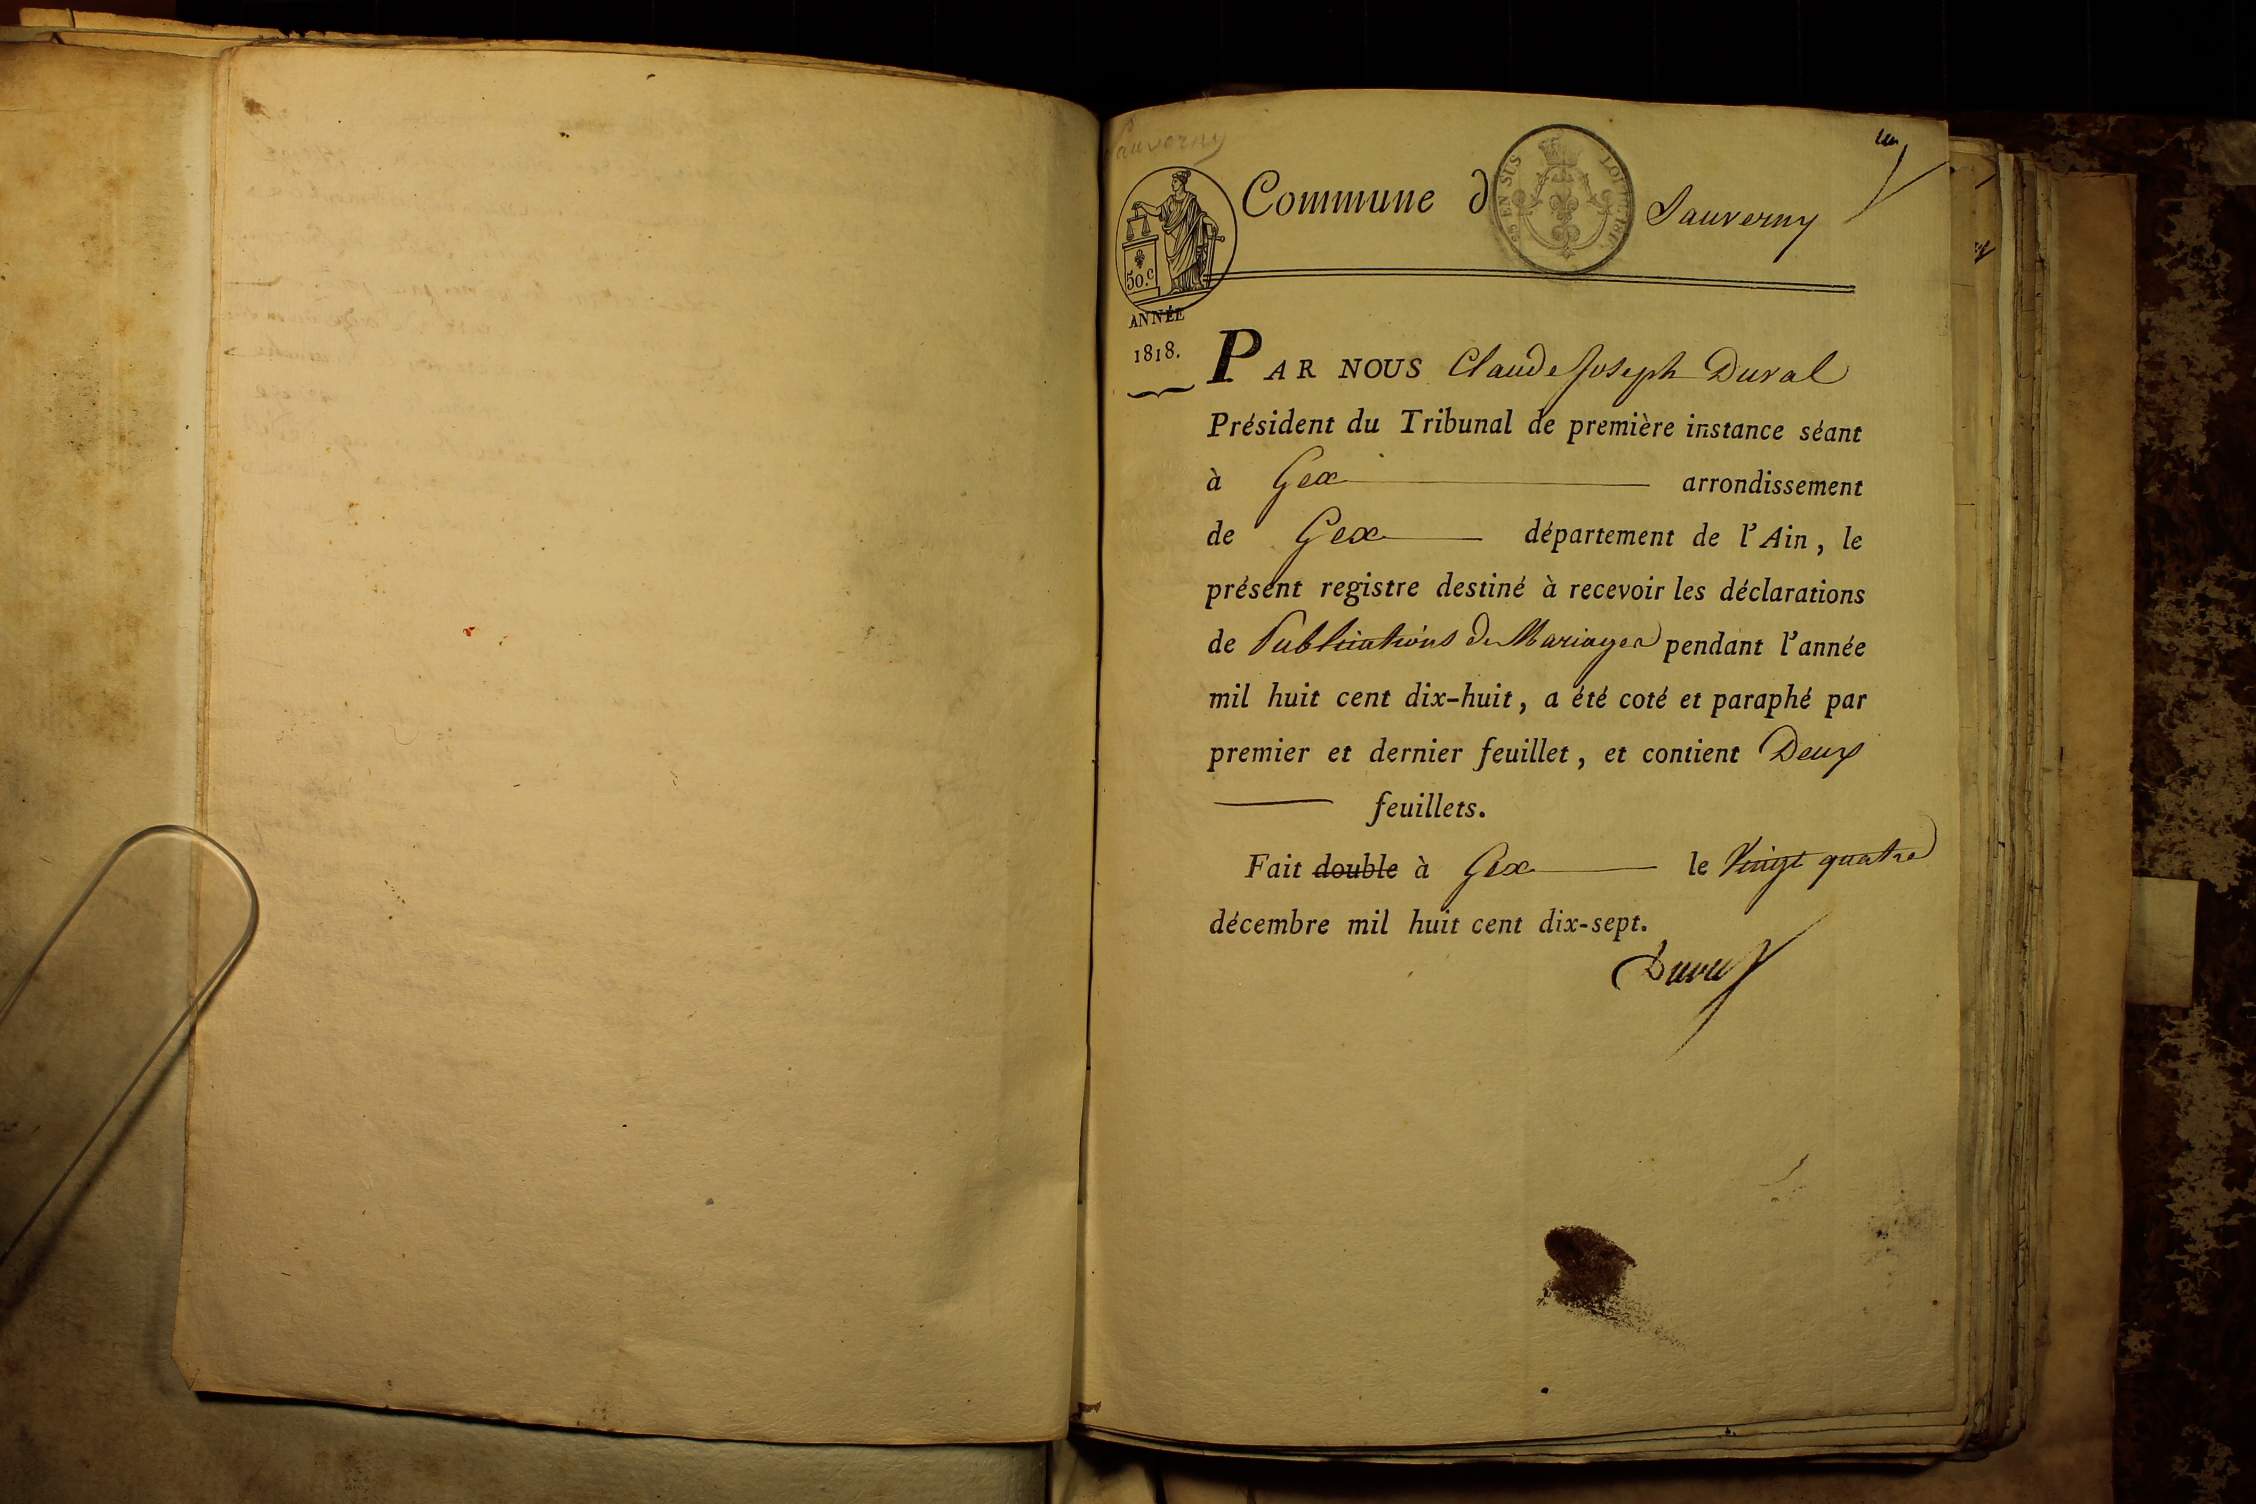 Sauverny
un
Commune d Sauverny
EN SUS
LOI DE 1816
50.c
ANNÉE
1818.
PAR NOUS Claude Joseph Duval
Président du Tribunal de première instance séant
à Gex arrondissement
de Gex département de l'Ain, le
présent registre destiné à recevoir les déclarations
de Publications de Mariages pendant l'année
mil huit cent dix-huit, a été coté et paraphé par
premier et dernier feuillet, et contient Deux
feuillets.
Fait double à Gex le Vingt quatre
décembre mil huit cent dix-sept.
Duval